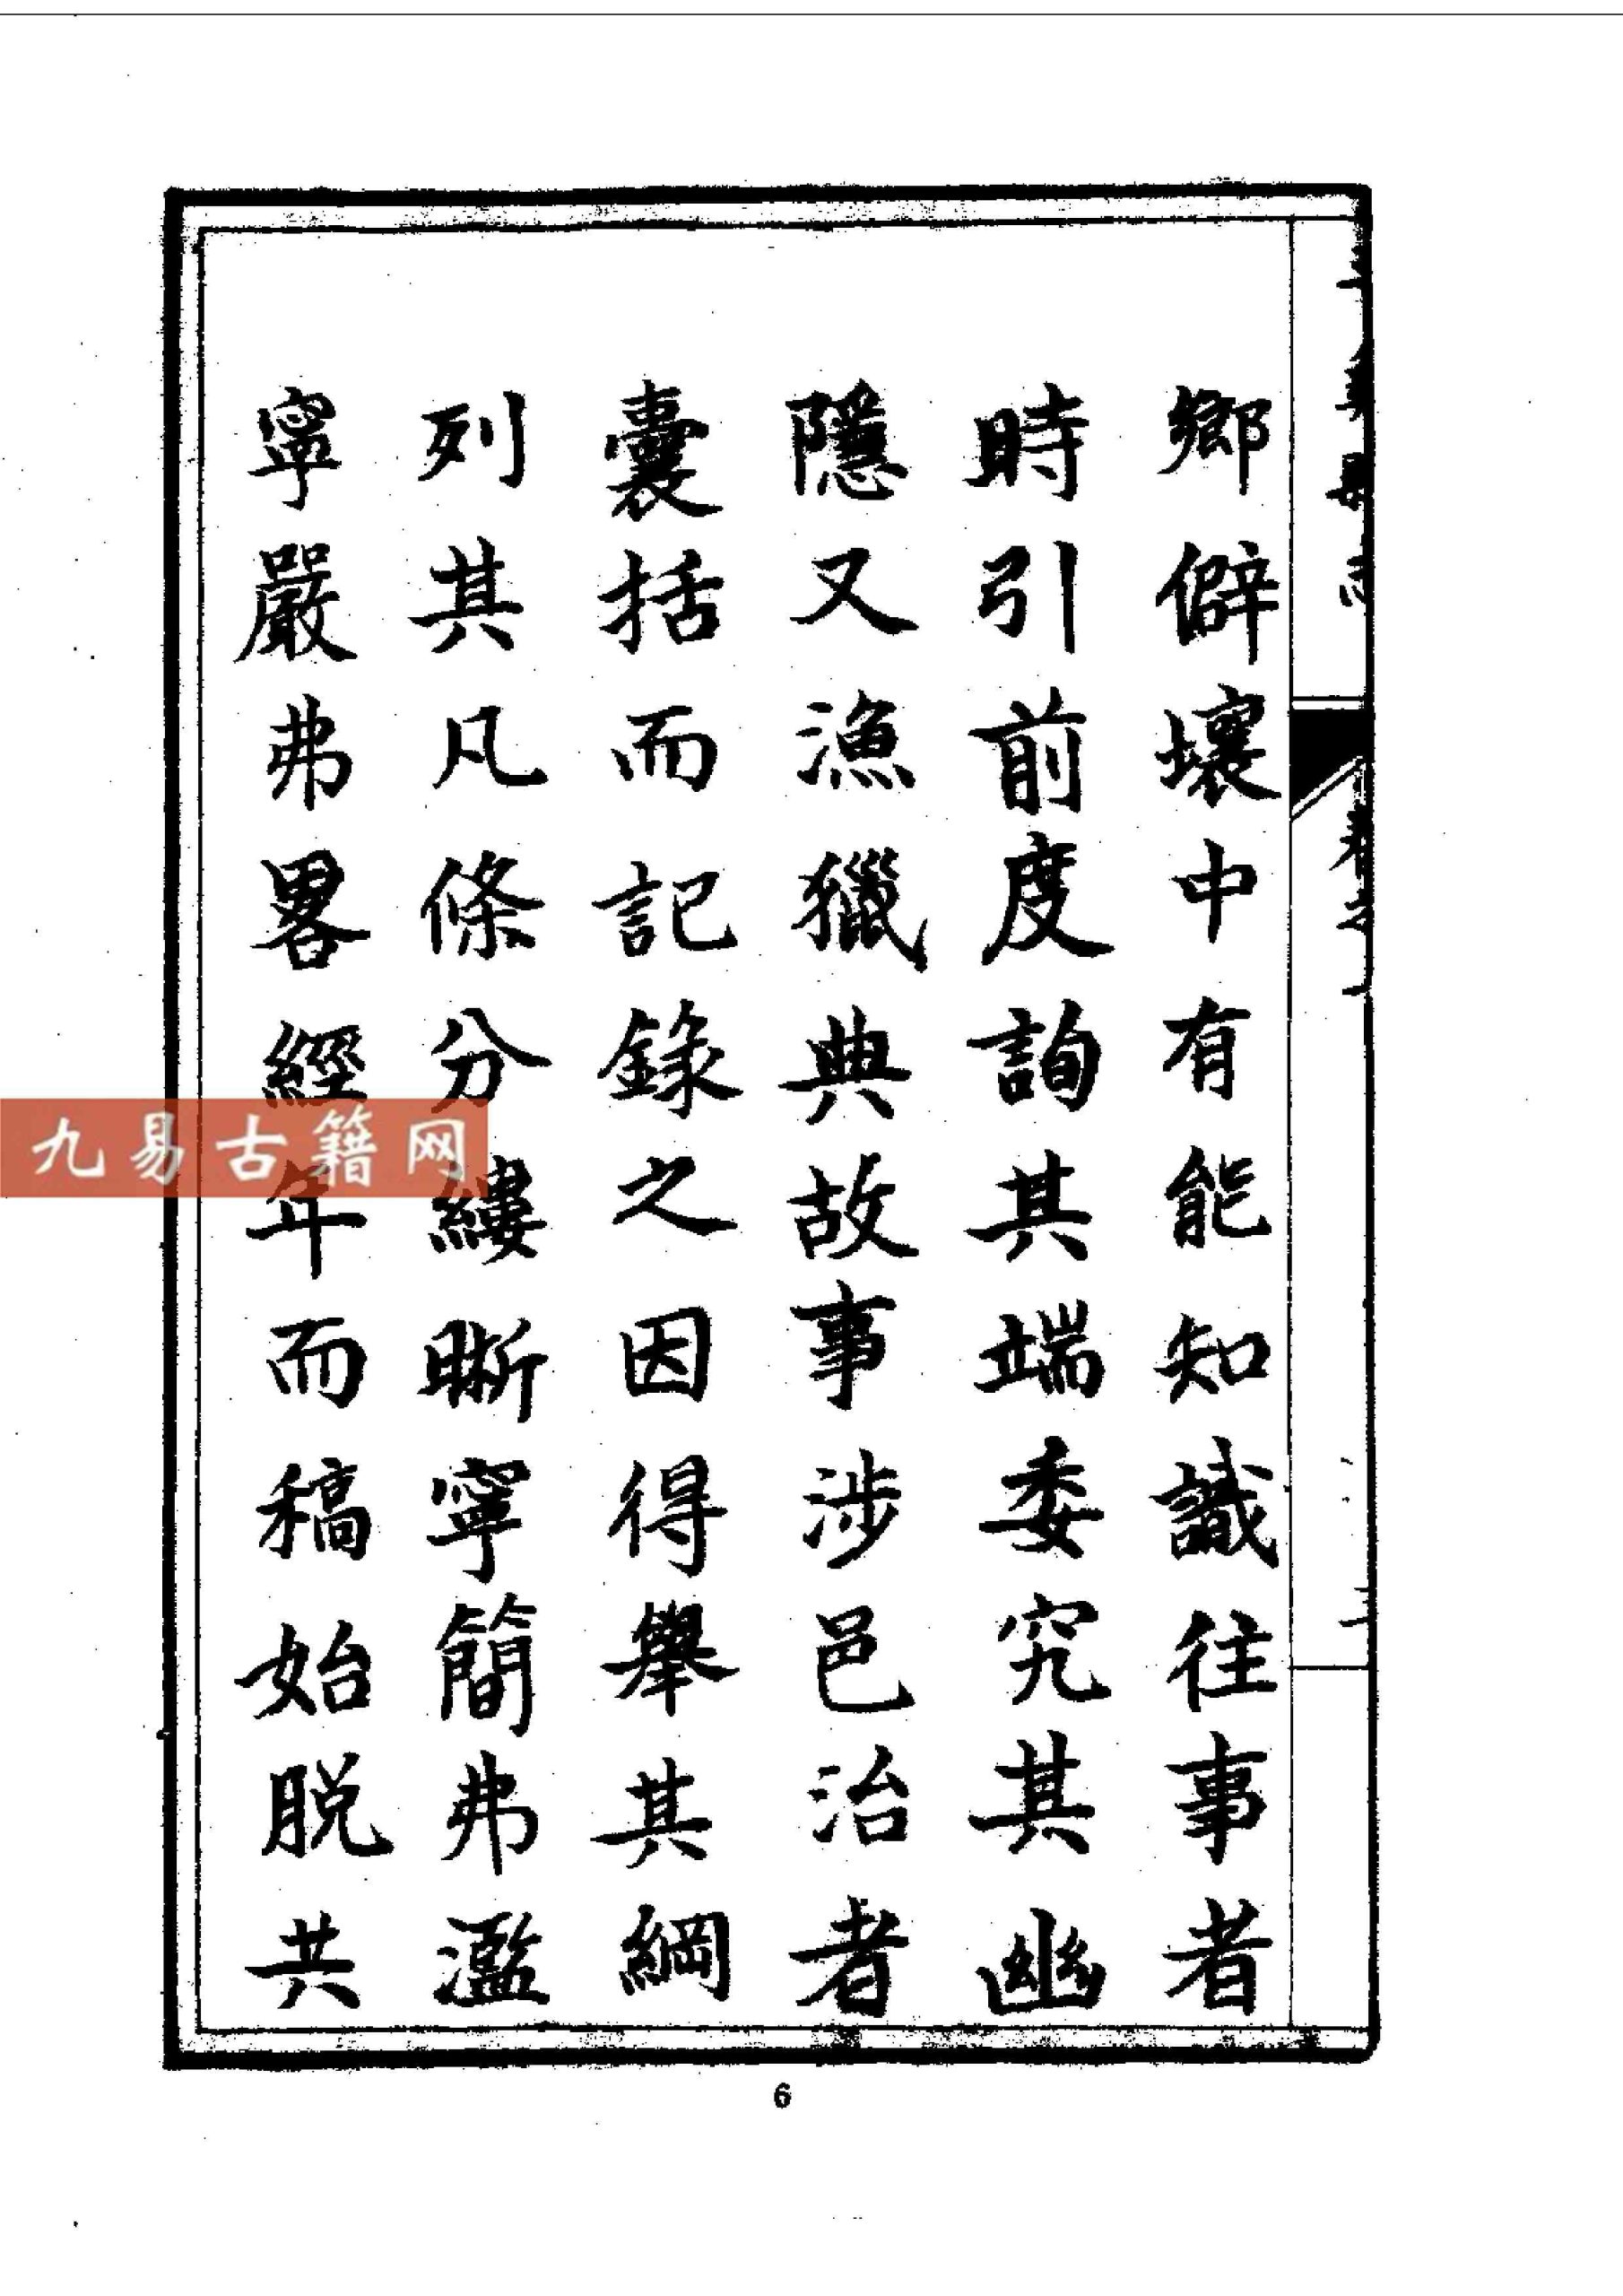 鄉僻壤中有能知識往事者
時引前度詢其端委究其幽
隱又漁獵典故事涉邑治者
囊括而記錄之因得舉其綱
列其凡條分縷晰寧簡弗濫
寧嚴弗畧經年而稿始脫共
九易古籍网
6